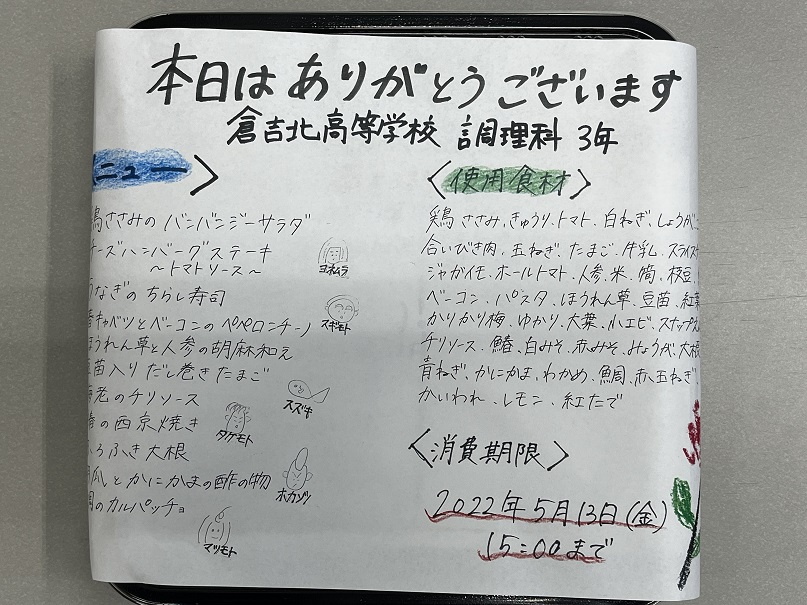 本日はありがとうございます
倉吉北高等学校 調理科 3年
ニュー〉
鶏ささみのバンバンジーサラダ
チーズハンバーグステーキ
～トマトソース～
うなぎのちらし寿司
春キャベツとベーコンのペペロンチーノ
ほうれん草と人参の胡麻和え
苗入りだし巻きたまご
海老のチリソース
の西京焼き
ふろふき大根
とかにかまの酢の物
のカルパッチョ
ヨネムラ
スギモト
スズキ
タケモト
ホカゾノ
マツモト
〈使用食材〉
鶏ささみ、きゅうり、トマト、白ねぎ、しょうが
合いびき肉、玉ねぎ、たまご、牛乳、スライス
ジャガイモ、ホールトマト、人参、米、枝豆
ベーコン、パスタ、ほうれん草、豆苗、紅
かりかり梅、ゆかり、大葉、小エビ、スナップ
チリソース、鰆、白みそ、赤みそ、みょうが、大根
青ねぎ、かにかま、わかめ、鯛、赤玉ねぎ、
かいわれ、レモン、紅たで
〈消費期限〉
2022年5月13日(金)
15:00まで